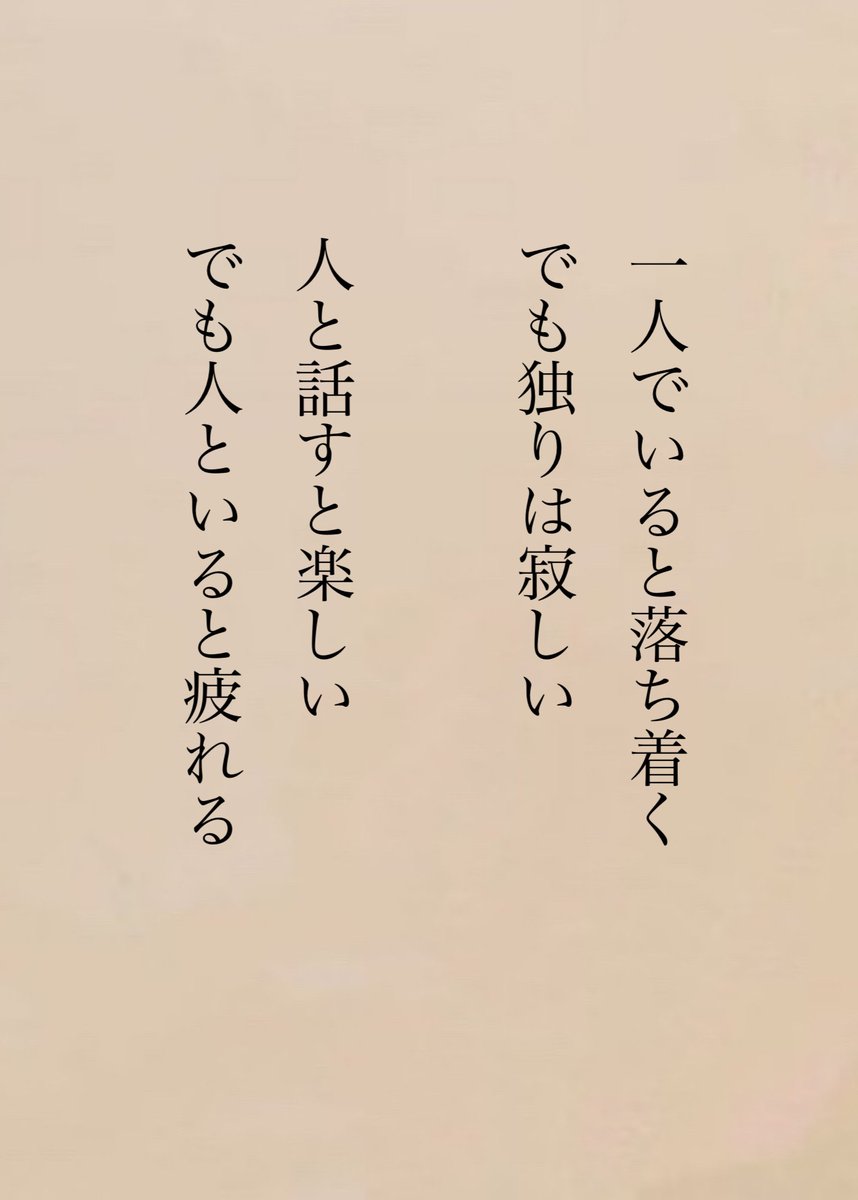 一人でいると落ち着く
でも独りは寂しい
人と話すと楽しい
でも人といると疲れる